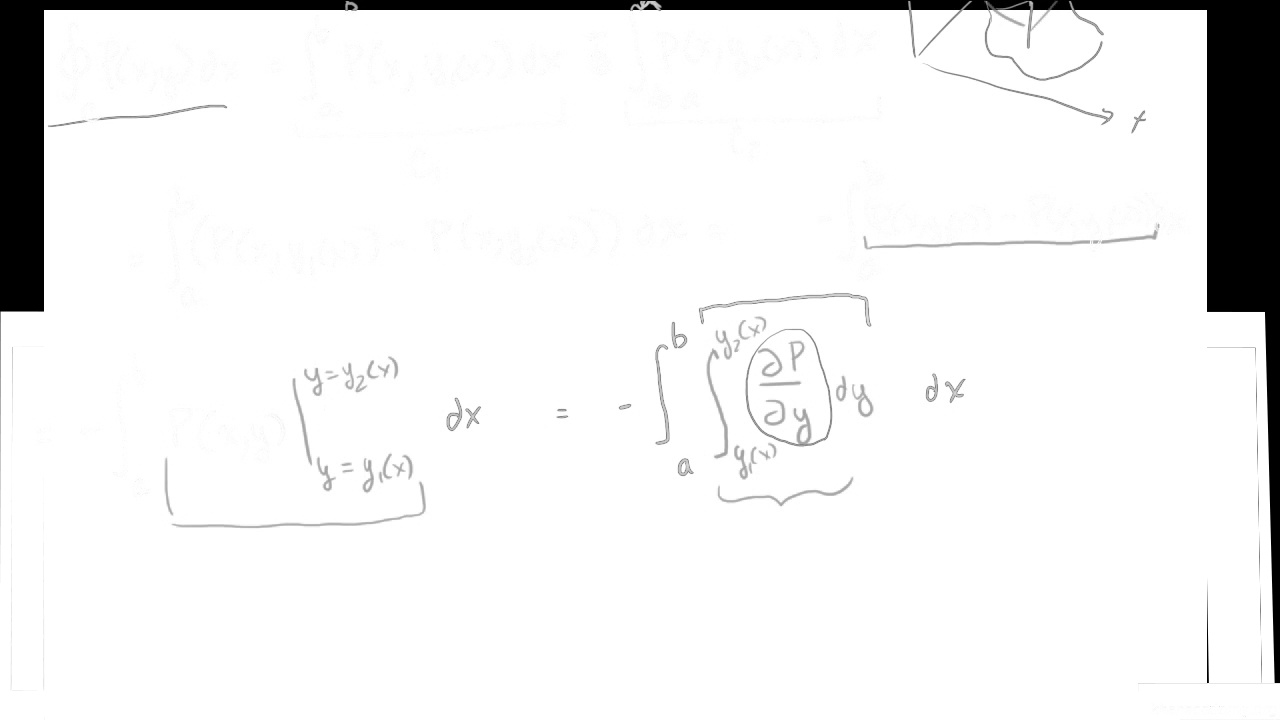 x
∮ P(x,y) dx = ∫_a^b P(x, y₁(x)) dx + ∫ P(x, y₂(x)) dx
C₁ C₂
= ∫_a^b (P(x, y₁(x)) - P(x, y₂(x))) dx = - ∫_a^b
= - ∫_a^b P(x,y) | y=y₂(x) y=y₁(x) dx = - ∫_a^b ∫_{y₁(x)}^{y₂(x)} ∂P/∂y dy dx